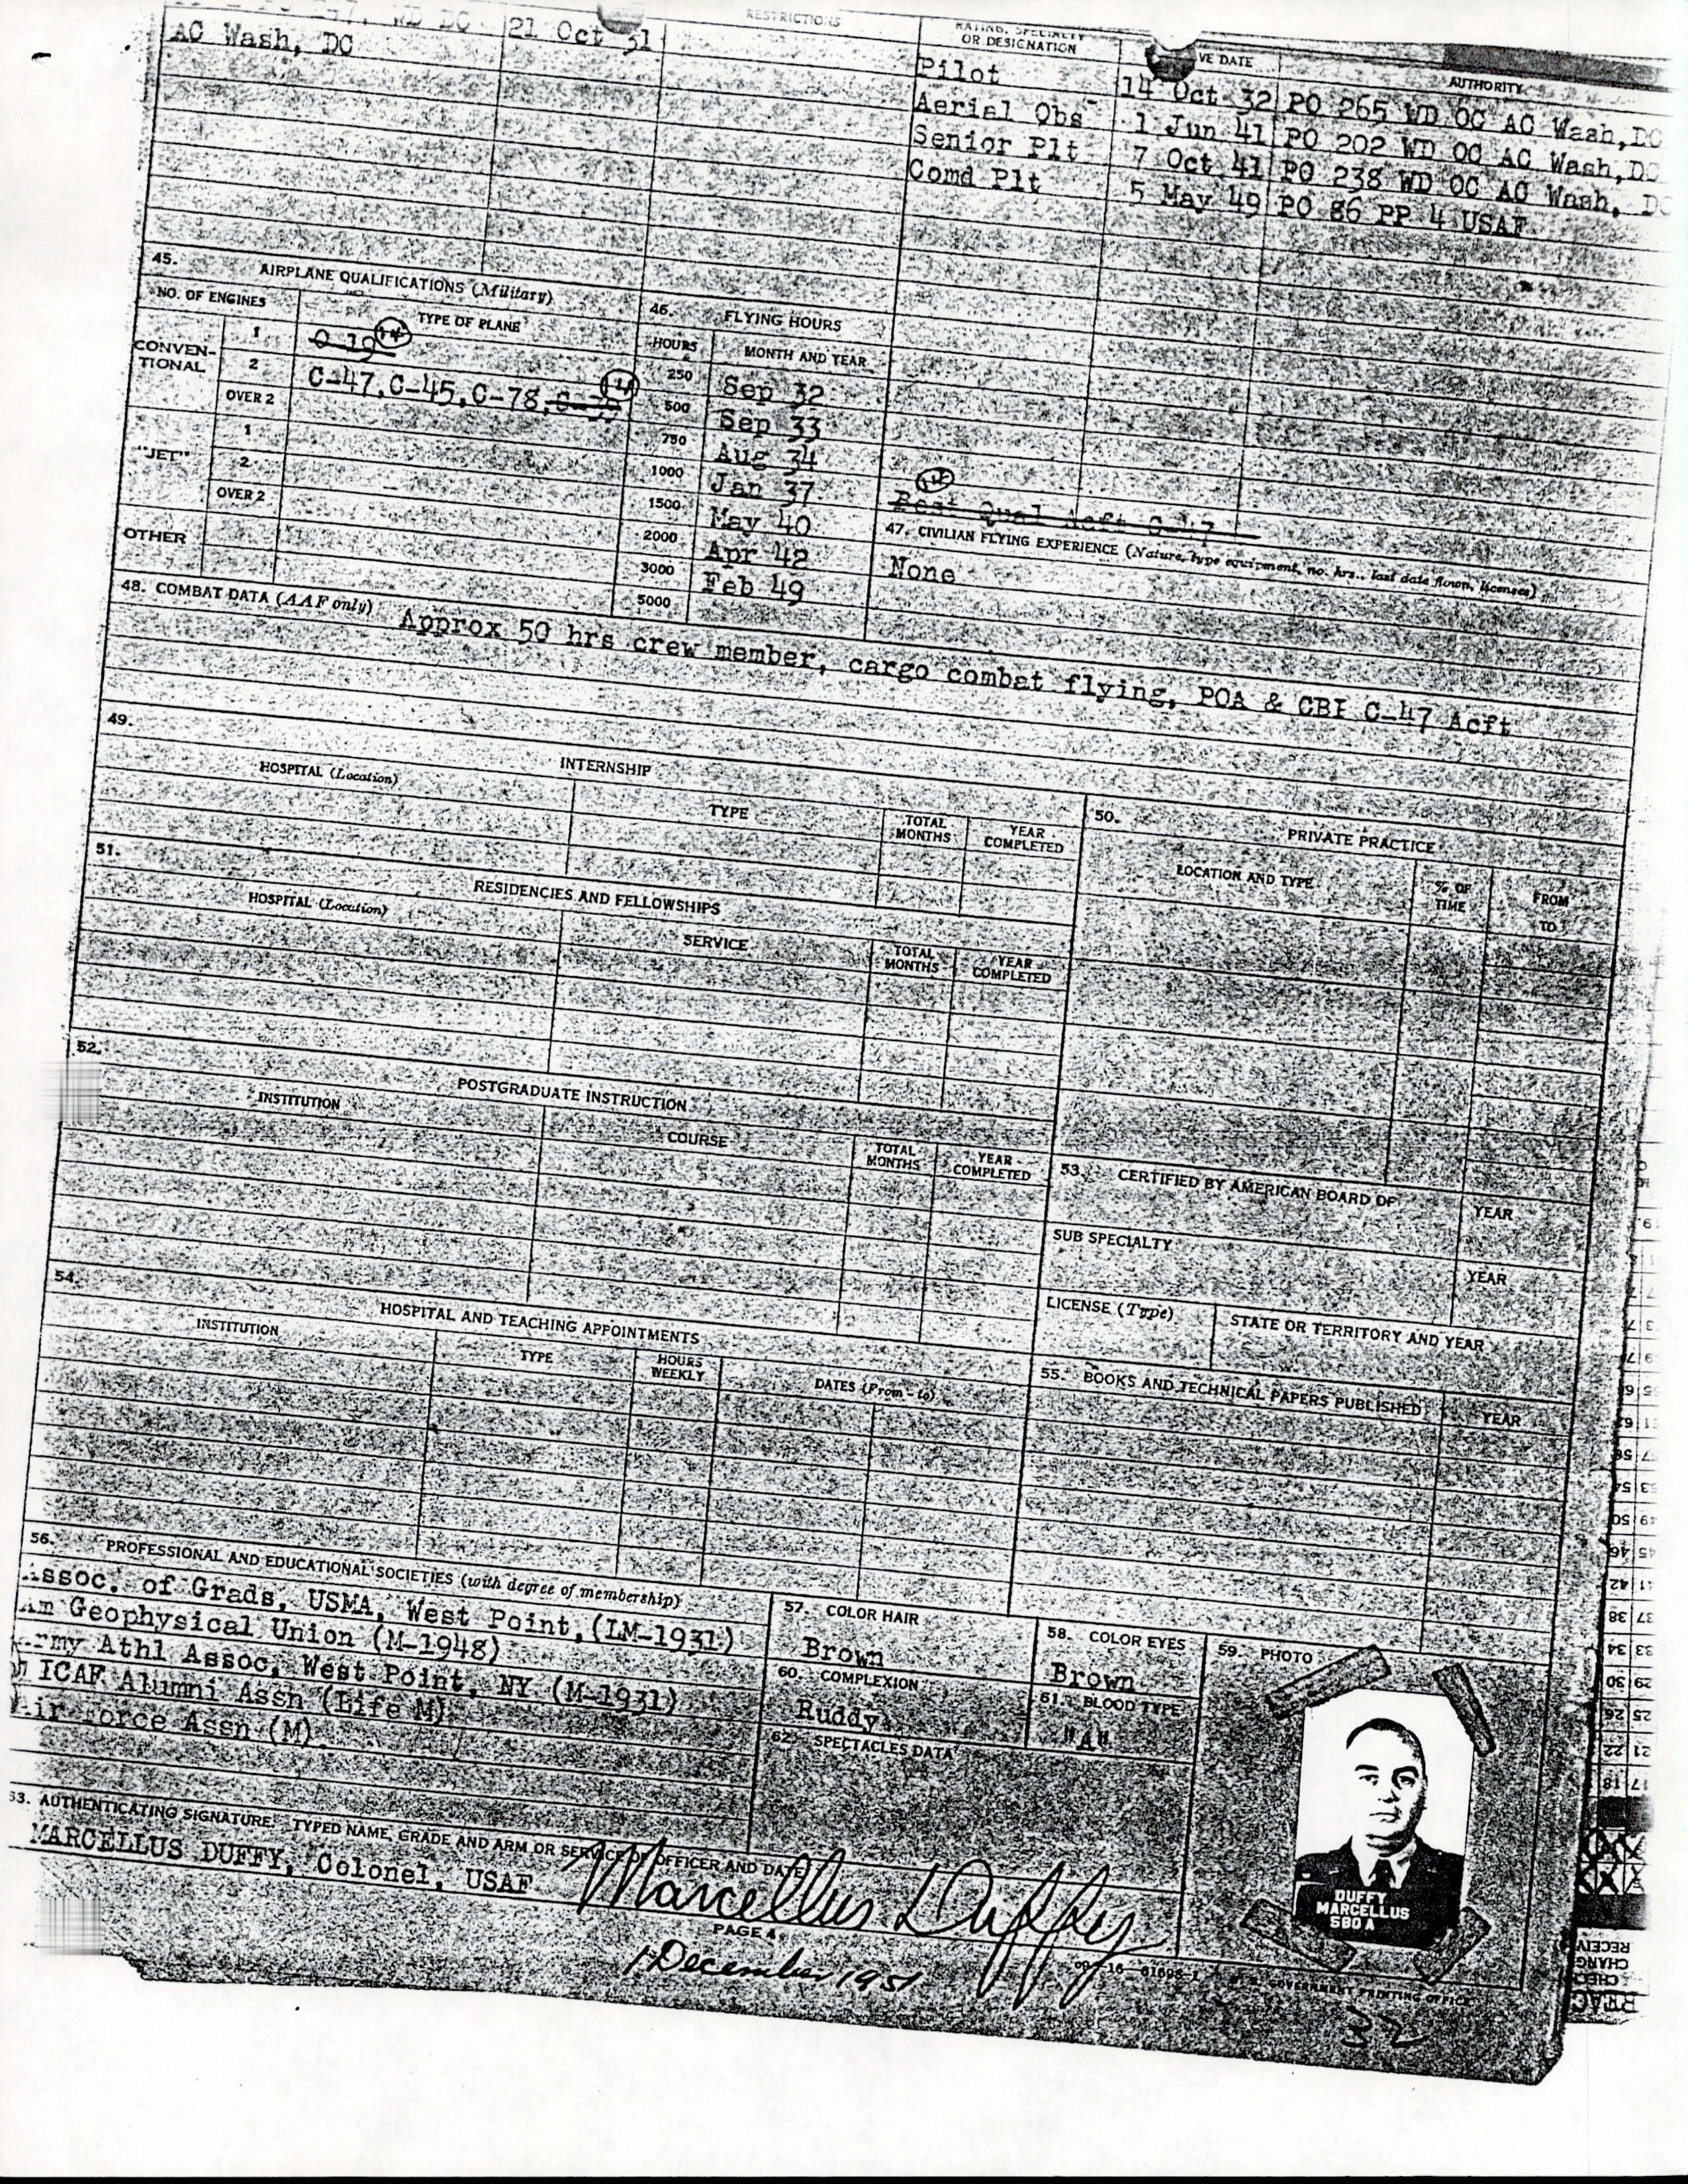 21 Oct 31
AC Wash, DC
RESTRICTIONS
RATING, SPECIALTY
OR DESIGNATION
VE DATE
AUTHORITY
Pilot 14 Oct 32 PO 265 WD OC AC Wash, DC
Aerial Obs 1 Jun 41 PO 202 WD OC AC Wash, DC
Senior Plt 7 Oct 41 PO 238 WD OC AC Wash, DC
Comd Plt 5 May 49 PO 86 PP 4 USAF
45. AIRPLANE QUALIFICATIONS (Military)
NO. OF ENGINES
TYPE OF PLANE
CONVEN-
TIONAL
1 O-19
2 C-47, C-45, C-78,
OVER 2
"JET"
1
2
OVER 2
OTHER
46. FLYING HOURS
HOURS MONTH AND YEAR
250 Sep 32
500 Sep 33
750 Aug 34
1000 Jan 37
1500 May 40
2000 Apr 42
3000 Feb 49
5000
Best Qual Acft C-47
47. CIVILIAN FLYING EXPERIENCE (Nature, type equipment, no. hrs., last date flown, licenses)
None
48. COMBAT DATA (AAF only) Approx 50 hrs crew member, cargo combat flying, POA & CBI C-47 Acft
49. INTERNSHIP
HOSPITAL (Location)
TYPE
TOTAL
MONTHS
YEAR
COMPLETED
50. PRIVATE PRACTICE
LOCATION AND TYPE
% OF
TIME
FROM
TO
51. RESIDENCIES AND FELLOWSHIPS
HOSPITAL (Location)
SERVICE
TOTAL
MONTHS
YEAR
COMPLETED
52. POSTGRADUATE INSTRUCTION
INSTITUTION
COURSE
TOTAL
MONTHS
YEAR
COMPLETED
53. CERTIFIED BY AMERICAN BOARD OF
YEAR
SUB SPECIALTY
YEAR
LICENSE (Type)
STATE OR TERRITORY AND YEAR
54. HOSPITAL AND TEACHING APPOINTMENTS
INSTITUTION
TYPE
HOURS
WEEKLY
DATES (From - to)
55. BOOKS AND TECHNICAL PAPERS PUBLISHED
YEAR
56. PROFESSIONAL AND EDUCATIONAL SOCIETIES (with degree of membership)
Assoc. of Grads, USMA, West Point, (LM-1931)
Am Geophysical Union (M-1948)
Army Athl Assoc, West Point, NY (M-1931)
ICAF Alumni Assn (Life M)
Air Force Assn (M)
57. COLOR HAIR
Brown
58. COLOR EYES
Brown
59. PHOTO
60. COMPLEXION
Ruddy
61. BLOOD TYPE
"A"
62. SPECTACLES DATA
DUFFY
MARCELLUS
580 A
63. AUTHENTICATING SIGNATURE, TYPED NAME, GRADE AND ARM OR SERVICE OF OFFICER AND DATE
MARCELLUS DUFFY, Colonel, USAF
Marcellus Duffy
PAGE 4
1 December 1951
U. S. GOVERNMENT PRINTING OFFICE
32